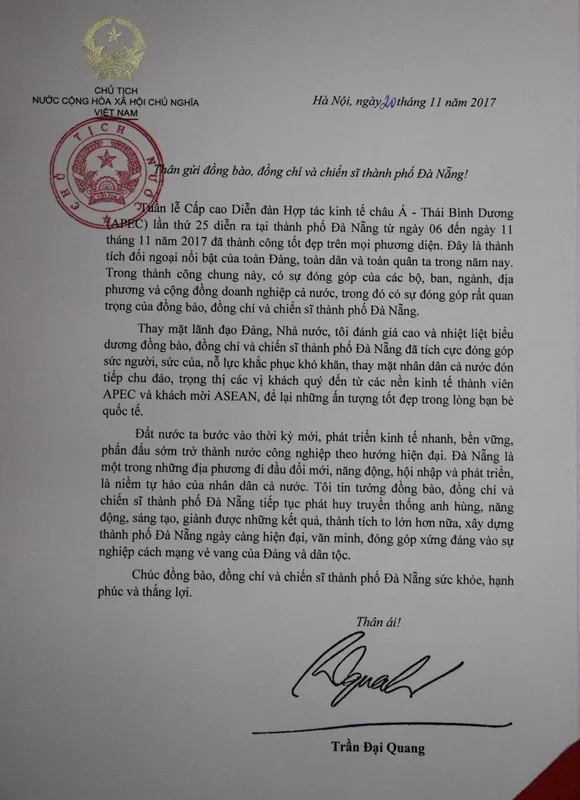 CHỦ TỊCH
NƯỚC CỘNG HÒA XÃ HỘI CHỦ NGHĨA
VIỆT NAM
Hà Nội, ngày 20 tháng 11 năm 2017
CHỦ TỊCH NƯỚC
Thân gửi đồng bào, đồng chí và chiến sĩ thành phố Đà Nẵng!
Tuần lễ Cấp cao Diễn đàn Hợp tác kinh tế châu Á - Thái Bình Dương
(APEC) lần thứ 25 diễn ra tại thành phố Đà Nẵng từ ngày 06 đến ngày 11
tháng 11 năm 2017 đã thành công tốt đẹp trên mọi phương diện. Đây là thành
tích đối ngoại nổi bật của toàn Đảng, toàn dân và toàn quân ta trong năm nay.
Trong thành công chung này, có sự đóng góp của các bộ, ban, ngành, địa
phương và cộng đồng doanh nghiệp cả nước, trong đó có sự đóng góp rất quan
trọng của đồng bào, đồng chí và chiến sĩ thành phố Đà Nẵng.
Thay mặt lãnh đạo Đảng, Nhà nước, tôi đánh giá cao và nhiệt liệt biểu
dương đồng bào, đồng chí và chiến sĩ thành phố Đà Nẵng đã tích cực đóng góp
sức người, sức của, nỗ lực khắc phục khó khăn, thay mặt nhân dân cả nước đón
tiếp chu đáo, trọng thị các vị khách quý đến từ các nền kinh tế thành viên
APEC và khách mời ASEAN, để lại những ấn tượng tốt đẹp trong lòng bạn bè
quốc tế.
Đất nước ta bước vào thời kỳ mới, phát triển kinh tế nhanh, bền vững,
phấn đấu sớm trở thành nước công nghiệp theo hướng hiện đại. Đà Nẵng là
một trong những địa phương đi đầu đổi mới, năng động, hội nhập và phát triển,
là niềm tự hào của nhân dân cả nước. Tôi tin tưởng đồng bào, đồng chí và
chiến sĩ thành phố Đà Nẵng tiếp tục phát huy truyền thống anh hùng, năng
động, sáng tạo, giành được những kết quả, thành tích to lớn hơn nữa, xây dựng
thành phố Đà Nẵng ngày càng hiện đại, văn minh, đóng góp xứng đáng vào sự
nghiệp cách mạng vẻ vang của Đảng và dân tộc.
Chúc đồng bào, đồng chí và chiến sĩ thành phố Đà Nẵng sức khỏe, hạnh
phúc và thắng lợi.
Thân ái!
Trần Đại Quang